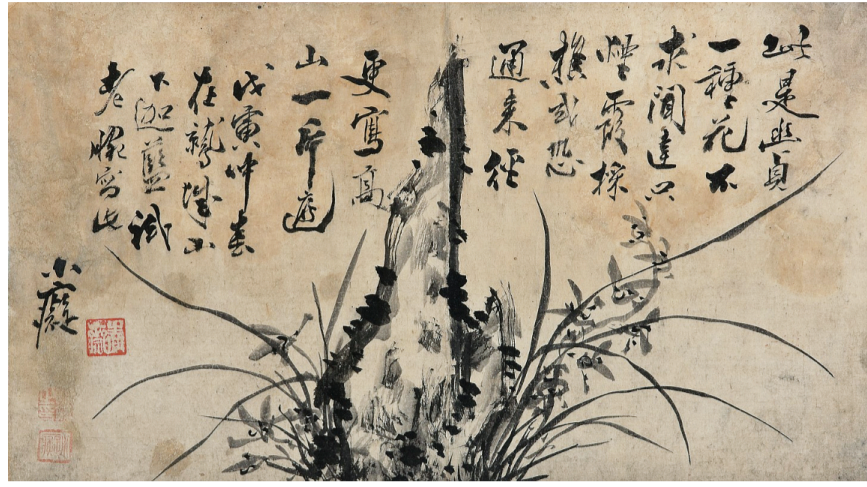 此是幽貞
一種花不
求聞達只
煙霞採
樵或恐
通來徑
更寫高
山一片遮
戊寅仲春
在鷲城山
下迦藍試
老腕寫此
小癡